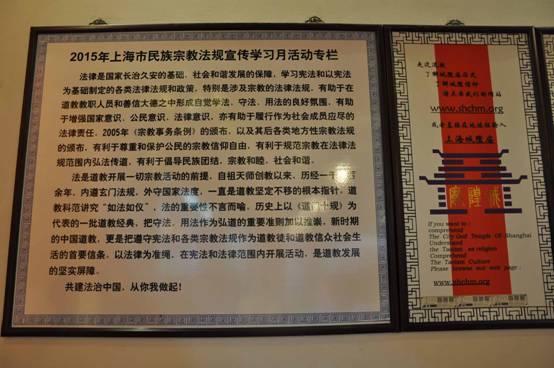 2015年上海市民族宗教法规宣传学习月活动专栏
法律是国家长治久安的基础、社会和谐发展的保障，学习宪法和以宪法
为基础制定的各类法律法规和政策，特别是涉及宗教的法律法规，有助于在
道教教职人员和善信大德之中形成自觉学法、守法、用法的良好氛围，有助
于增强国家意识、公民意识、法律意识，亦有助于履行作为社会成员应尽的
法律责任。2005年《宗教事务条例》的颁布，以及其后各类地方性宗教法规
的颁布，有利于尊重和保护公民的宗教信仰自由，有利于规范宗教在法律法
规范围内弘法传道，有利于倡导民族团结、宗教和睦、社会和谐。
法是道教开展一切宗教活动的前提，自祖天师创教以来，历经一千
余年，内遵玄门法规，外守国家法度，一直是道教坚定不移的根本指针，道
教科范讲究“如法如仪”，法的重要性不言而喻。历史上以《道门十规》为
代表的一批道教经典，把守法、用法作为弘道的重要准则加以推崇。新时期
的中国道教，更是把遵守宪法和各类宗教法规作为道教徒和道教信众社会生
活的首要信条，以法律为准绳，在宪法和法律范围内开展活动，是道教发展
的坚实屏障。
共建法治中国，从你我做起！
了解城隍信仰
www.shchm.org
上海城隍庙
城隍庙
If you want to :
comprehend
The City God Temple Of Shanghai
Understand
the Taoism as religion
Comprehend
The Taoism Culture
Please browse our web page :
www.shchm.org